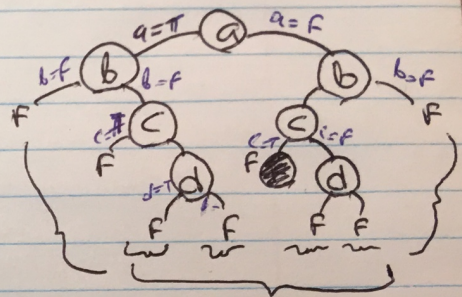 a=T a a=F
b=F b b=F b b=F
F c c F
c=T F c=T F c=F
d=T d d
F F F F